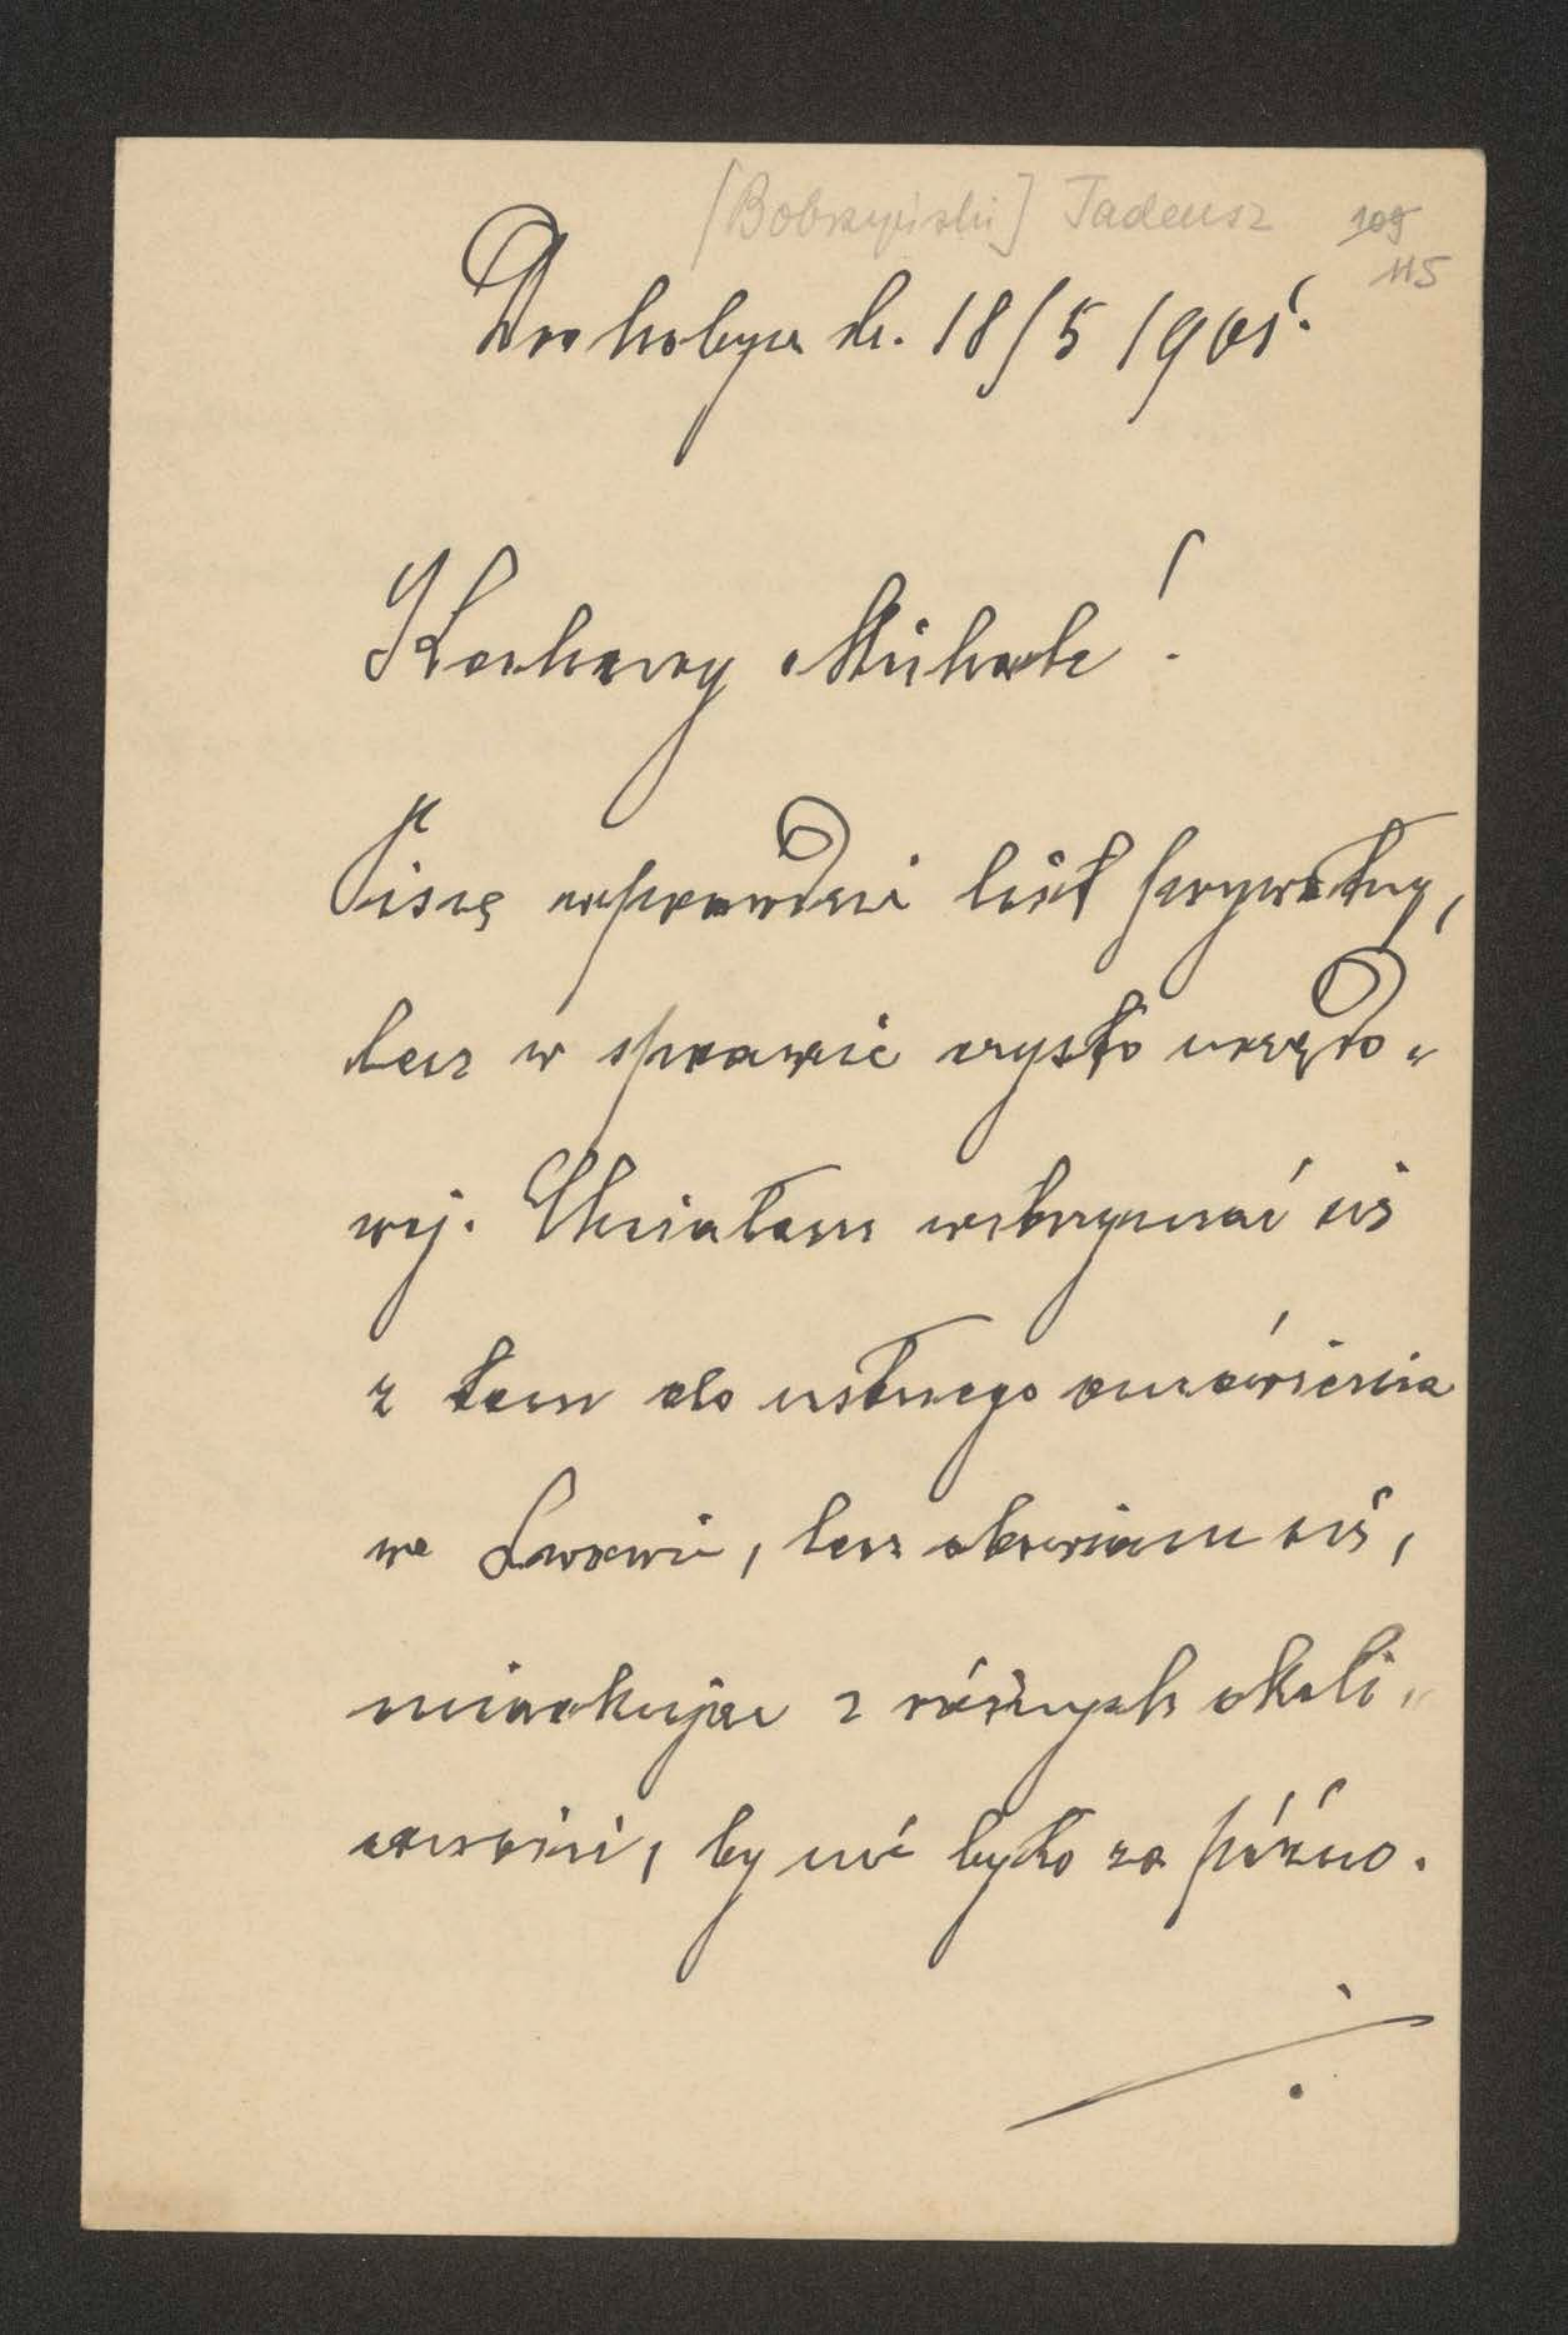 [Bobrzyński] Tadeusz 109
115
Drohobycz dn. 18/5 1905.
Kochany Michale!
Piszę wprawdzie list prywatny,
lecz w sprawie czysto urzędo-
wej. Chciałem wstrzymać się
z tem do ustnego omówienia
we Lwowie, lecz obawiam się,
miarkując z różnych okoli-
czności, by nie było za późno.